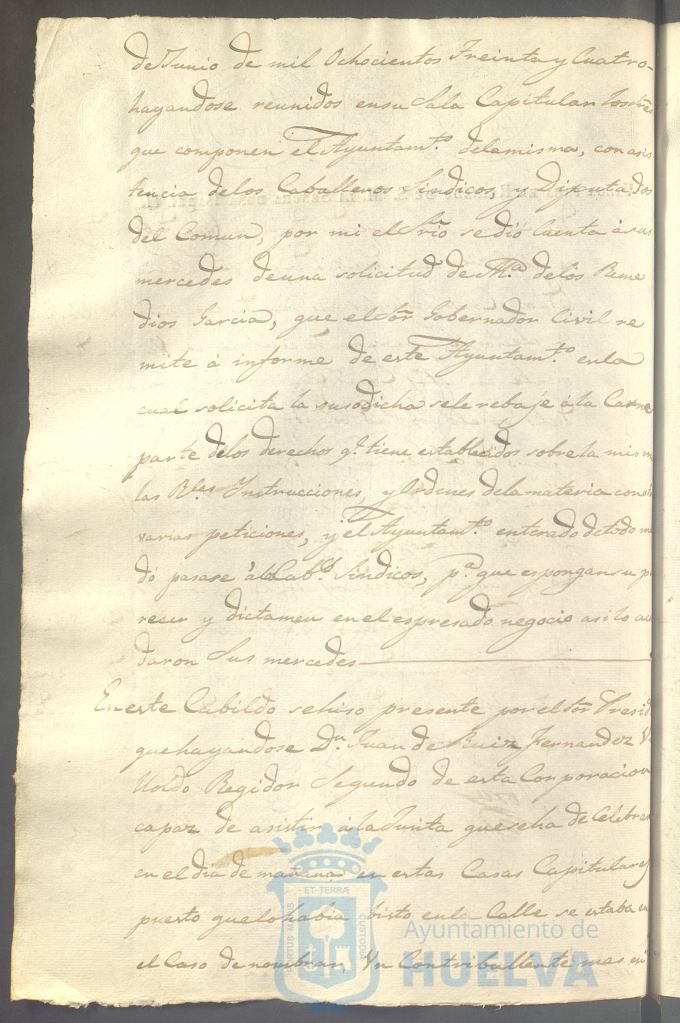 de Junio de mil Ochocientos Treinta y Cuatro-
hayandose reunidos ensu Sala Capitular los Sres
que componen el Ayuntamto. delamisma, con asis
tencia delos Caballeros Sindicos, y Diputados
del Comun, por mi el Srio se dió Cuenta á sus
mercedes deuna solicitud de Ma. delos Reme
dios Garcia, que el Sor. Gobernador Civil re
mite á informe de este Ayuntamto. enla
cual solicita la susodicha sele rebaje á la Carne
parte delos derechos qe. tiene establecidos sobre la mism
las Rles Instrucciones, y Ordenes dela materia con
varias peticiones, y el Ayuntamto. enterado detodo m
dó pasase á los Cabos. Sindicos, pa. que espongan su p
recer y dictamen en el espresado negocio asi lo ac
daron Sus mercedes
En este Cabildo se hiso presente por el Sor Presid
que hayandose Dn. Juan de Ruiz Fernandez
Regidor Segundo de esta Corporacion
capaz de asistir á la Junta que se ha de Celebrar
en el dia de mañana en estas Casas Capitulares
puesto que lo habia bisto en la Calle se estaba en
el Caso de nombrar Un Contribullente mas en
PORTUS MARIS ET TERRÆ CUSTODIA
Ayuntamiento de
HUELVA